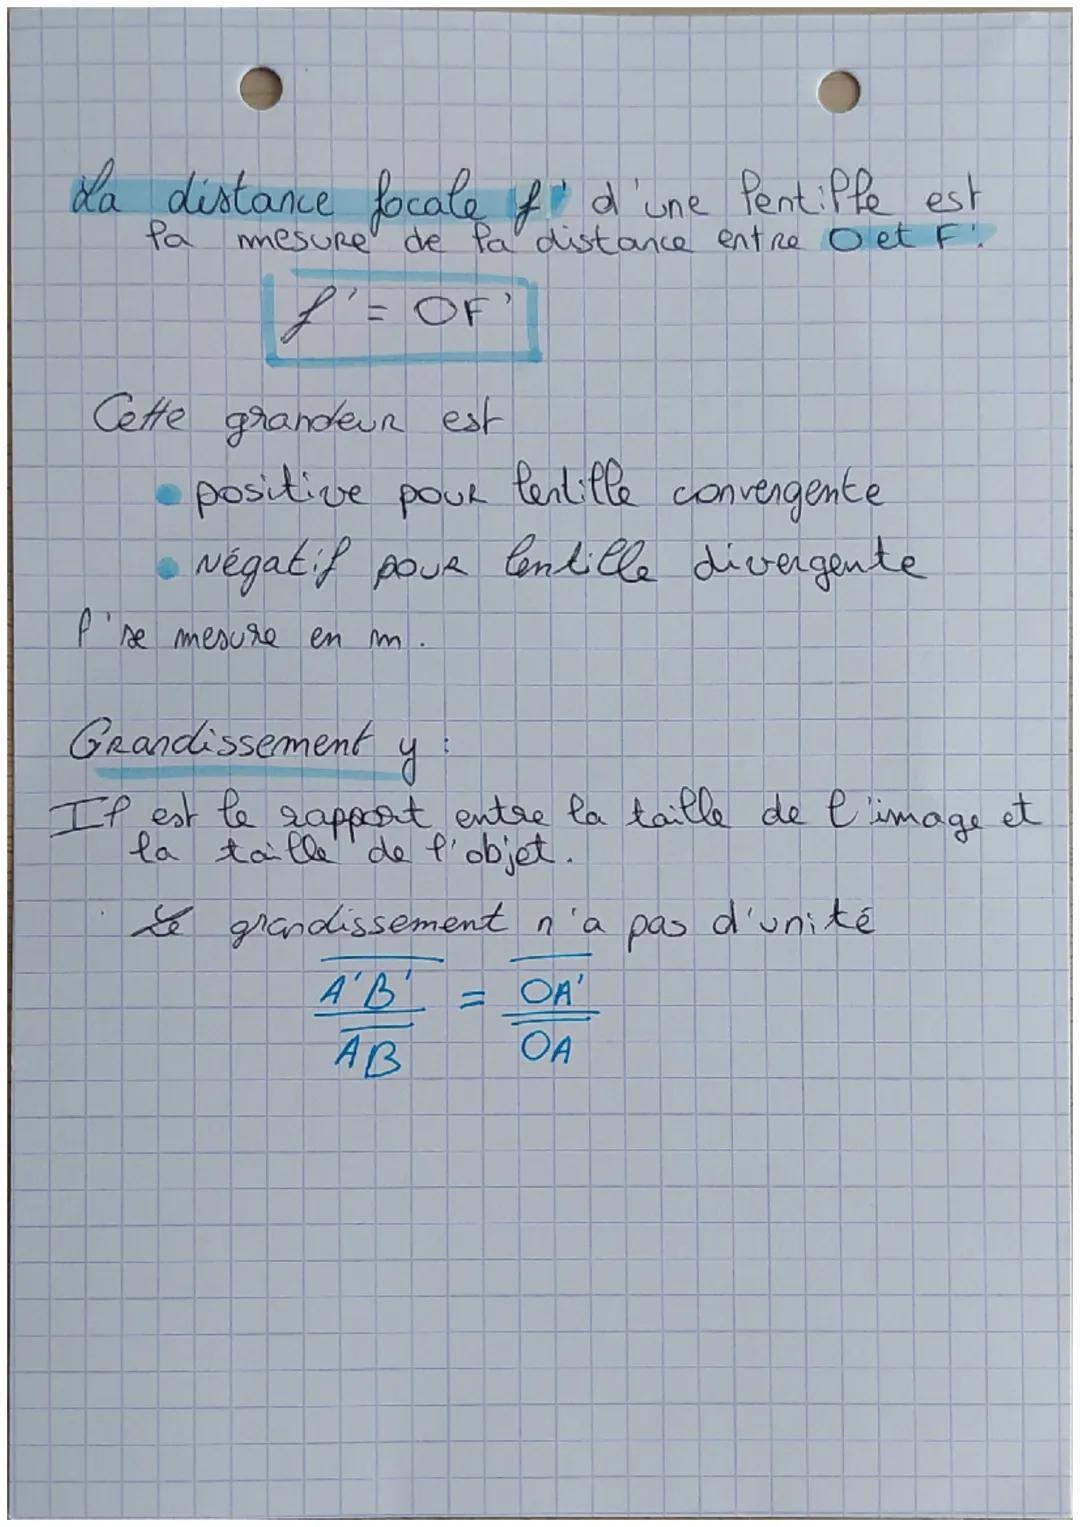 La distance focale f' d'une lentille est
la mesure de la distance entre O et F'.
f' = OF'
Cette grandeur est
• positive pour lentille convergente
• Négatif pour lentille divergente
f' se mesure en m.
Grandissement y :
Il est le rapport entre la taille de l'image et
la taille de l'objet.
Le grandissement n'a pas d'unité
A'B' = OA'
AB OA